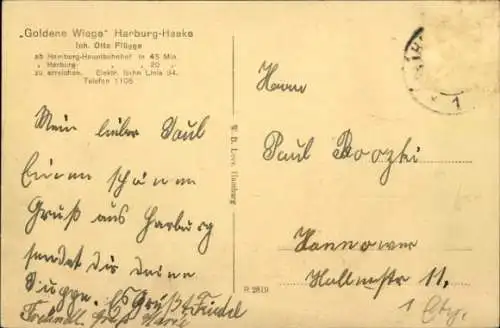 „Goldene Wiege" Harburg-Haake
Inh. Otto Flügge
ab Hamburg-Hauptbahnhof in 45 Min.
„ Harburg „ 20 „
zu erreichen. Elektr. Bahn Linie 34.
Telefon 1105
Mein lieber Paul
Einen schönen
Gruß aus Harburg
sendet dir deine
Es Grüßt Friedel
Freundl. Gruß
W. B. Loes, Hamburg
R 2819
Herrn
Paul
Hannover
11.
1 Etg.